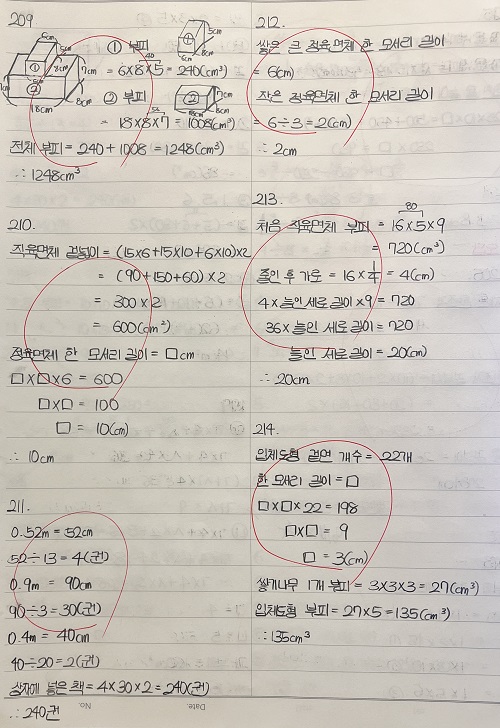 209
① 부피
= 6×8×5 = 240(cm³)
40
② 부피
= 18×8×7 = 1008(cm³)
56
전체 부피 = 240 + 1008 = 1248(cm³)
∴ 1248cm³
210.
직육면체 겉넓이 = (15×6+15×10+6×10)×2
= (90+150+60)×2
= 300×2
= 600(cm²)
정육면체 한 모서리 길이 = □cm
□×□×6 = 600
□×□ = 100
□ = 10(cm)
∴ 10cm
211.
0.52m = 52cm
52÷13 = 4(권)
0.9m = 90cm
90÷3 = 30(권)
0.4m = 40cm
40÷20 = 2(권)
상자에 넣은 책 = 4×30×2 = 240(권)
∴ 240권
212.
쌓은 큰 정육면체 한 모서리 길이
= 6(cm)
작은 정육면체 한 모서리 길이
= 6÷3 = 2(cm)
∴ 2cm
213.
80
처음 직육면체 부피 = 16×5×9
= 720(cm³)
줄인 후 가로 = 16×1/4 = 4(cm)
4×늘인 세로 길이×9 = 720
36×늘인 세로 길이 = 720
늘인 세로 길이 = 20(cm)
∴ 20cm
214.
입체도형 겉면 개수 = 22개
한 모서리 길이 = □
□×□×22 = 198
□×□ = 9
□ = 3(cm)
쌓기나무 1개 부피 = 3×3×3 = 27(cm³)
입체도형 부피 = 27×5 = 135(cm³)
∴ 135cm³
Date. No.